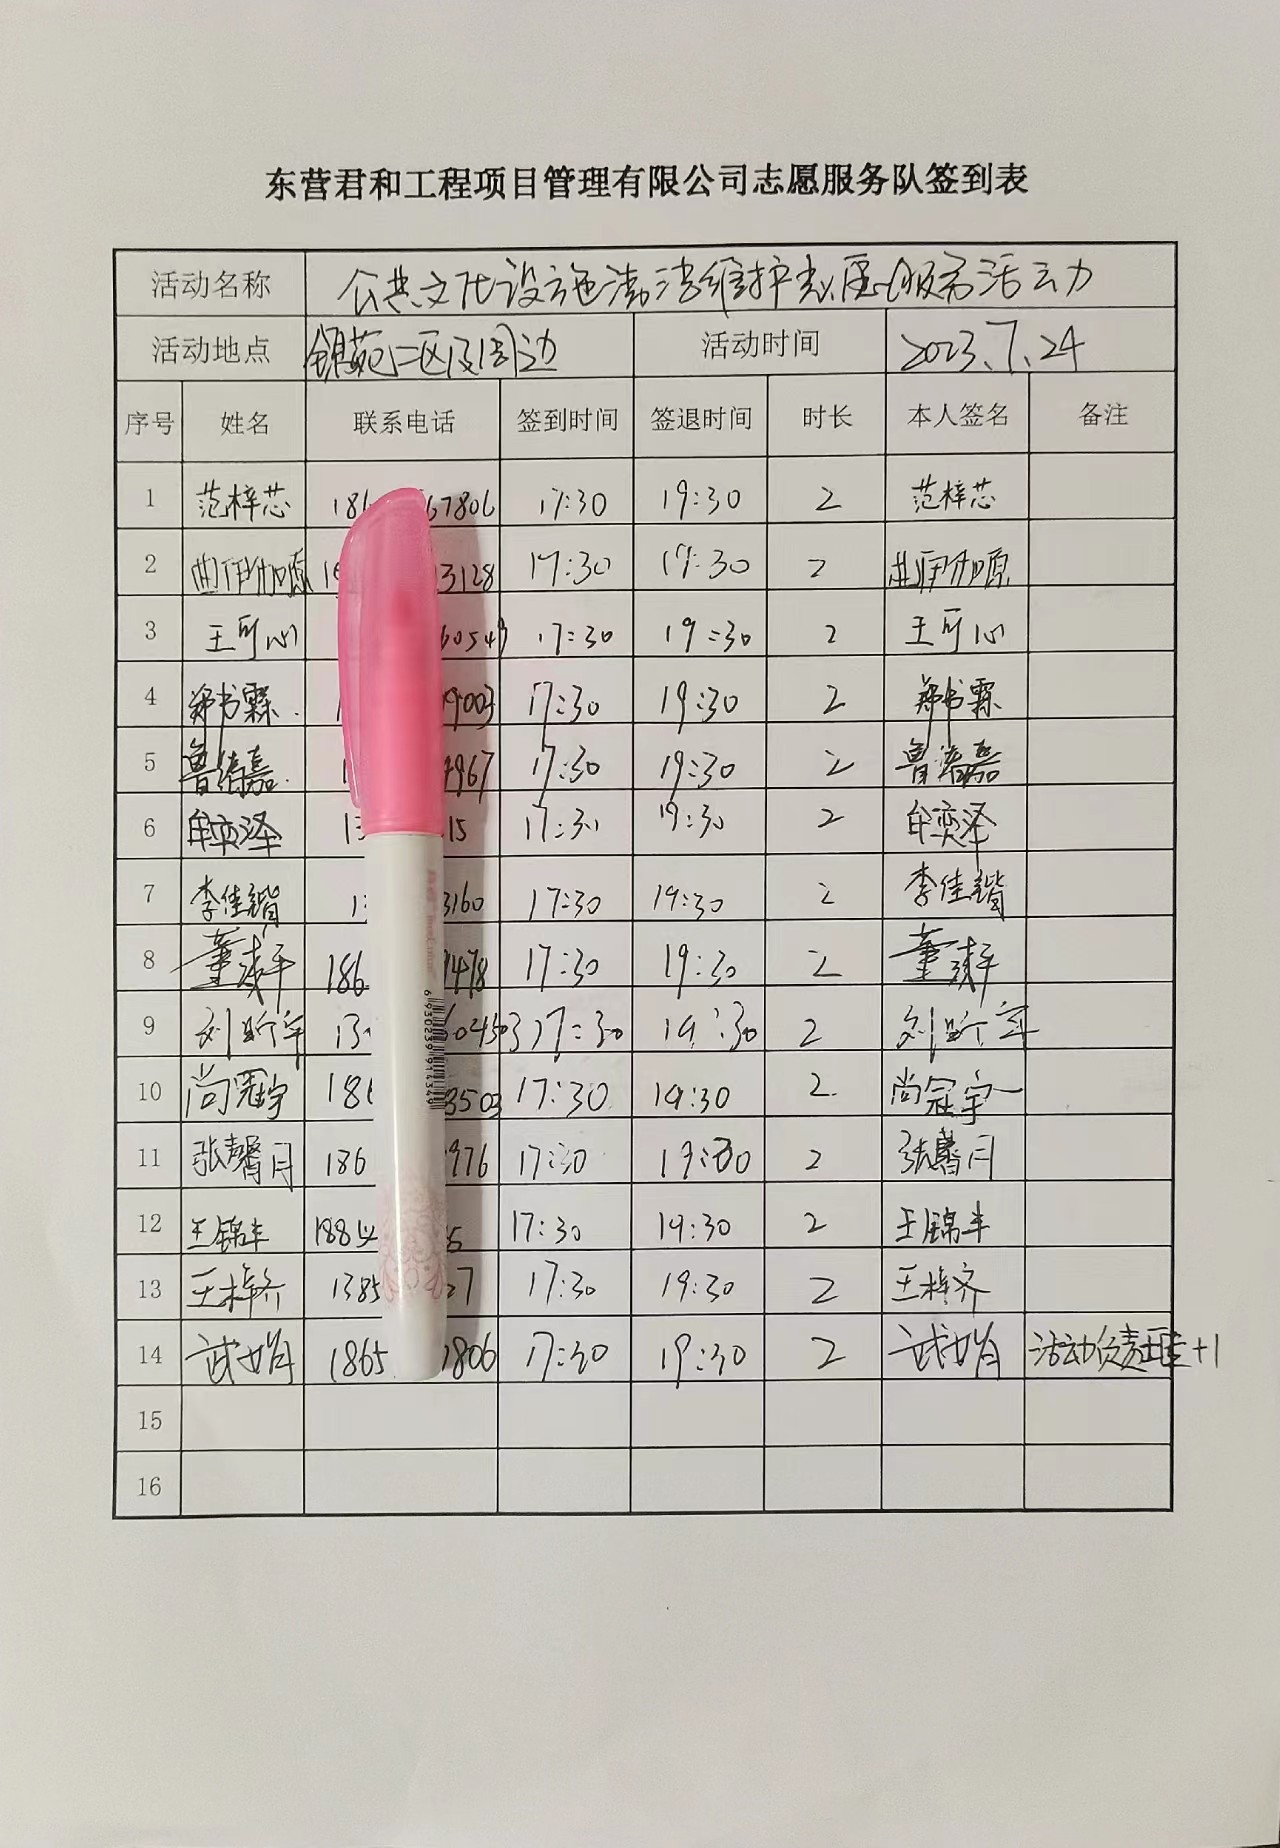 东营君和工程项目管理有限公司志愿服务队签到表
活动名称 公共文化设施清洁维护志愿服务活动
活动地点 锦苑二区及周边 活动时间 2023.7.24
序号 姓名 联系电话 签到时间 签退时间 时长 本人签名 备注
1 范梓芯 186 67806 17:30 19:30 2 范梓芯
2 曲伊加原 3128 17:30 19:30 2 曲伊加原
3 王可心 60549 17:30 19:30 2 王可心
4 郑书霖 9003 17:30 19:30 2 郑书霖
5 鲁浠嘉 4967 17:30 19:30 2 鲁浠嘉
6 牟奕泽 13 15 17:30 19:30 2 牟奕泽
7 李佳锴 13 3160 17:30 19:30 2 李佳锴
8 董 186 9478 17:30 19:30 2 董
9 刘昕宇 13 17:30 19:30 2 刘昕宇
10 尚冠宇 186 3503 17:30 19:30 2 尚冠宇
11 张馨月 186 976 17:30 19:30 2 张馨月
12 王锦丰 188 5 17:30 19:30 2 王锦丰
13 王梓齐 1385 27 17:30 19:30 2 王梓齐
14 武娟 1865 806 17:30 19:30 2 武娟 活动负责+1
15
16
6930239911434